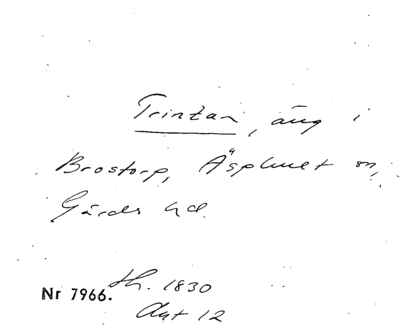 Trintan, äng i
Brostorp, Äsphult sn,
Gärds hd.
Nr 7966. th. 1830
Akt 12